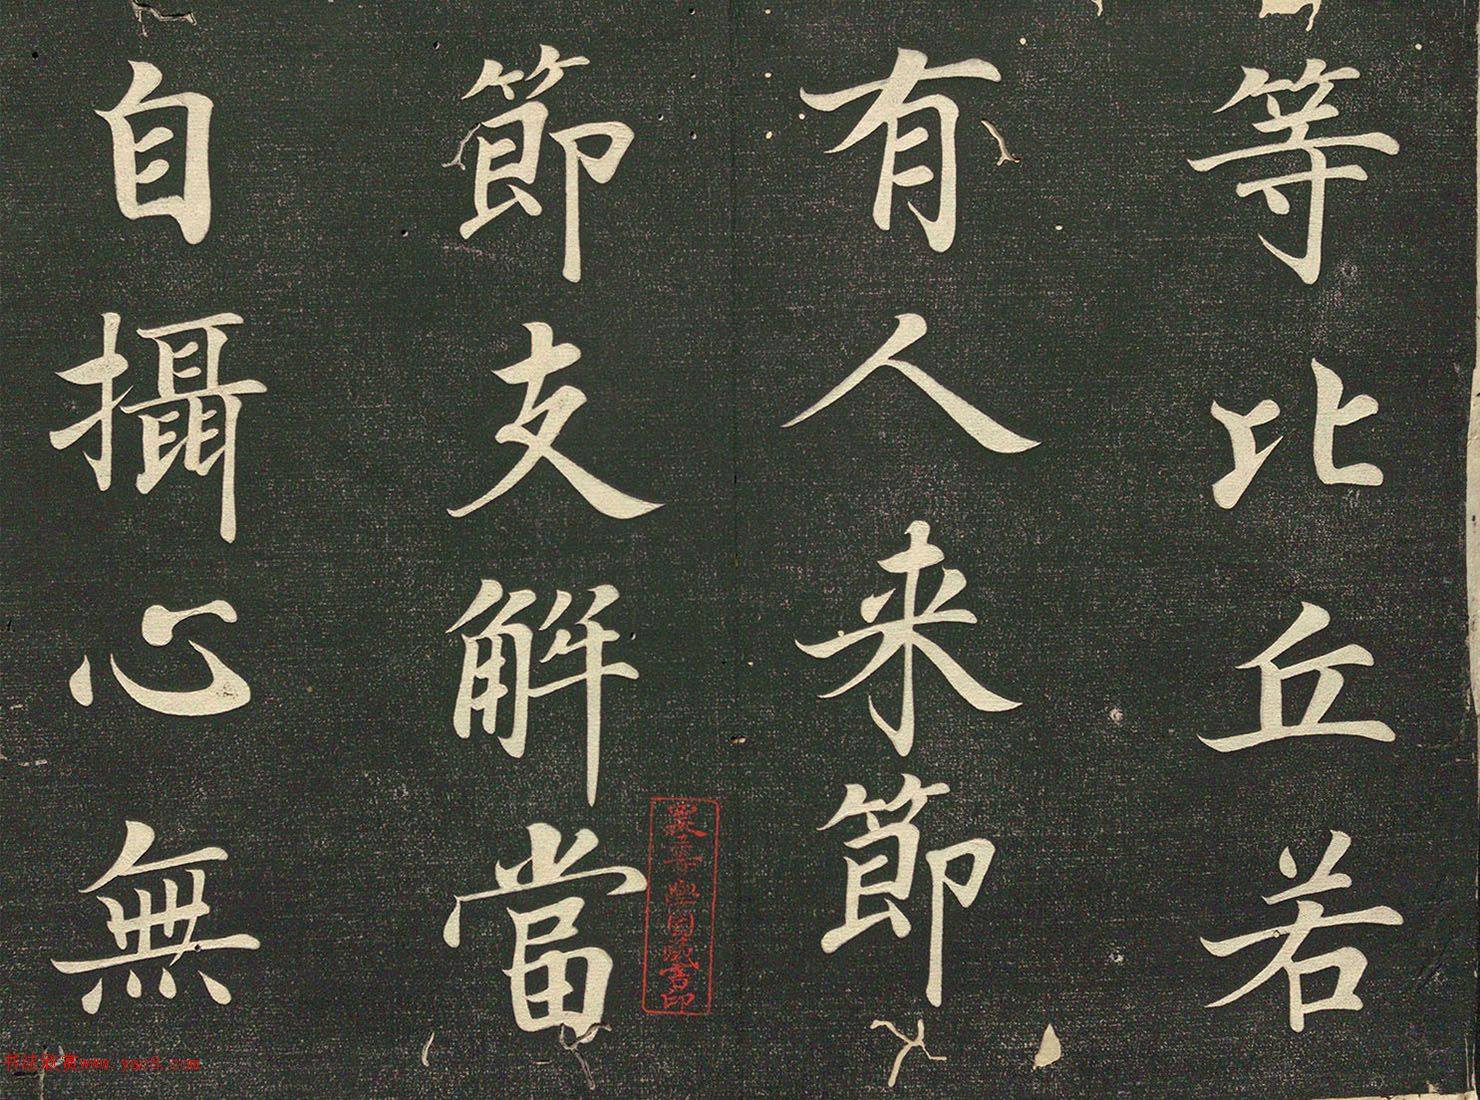 等比丘若
有人来節
節支解當
自攝心無
www.yac8.com